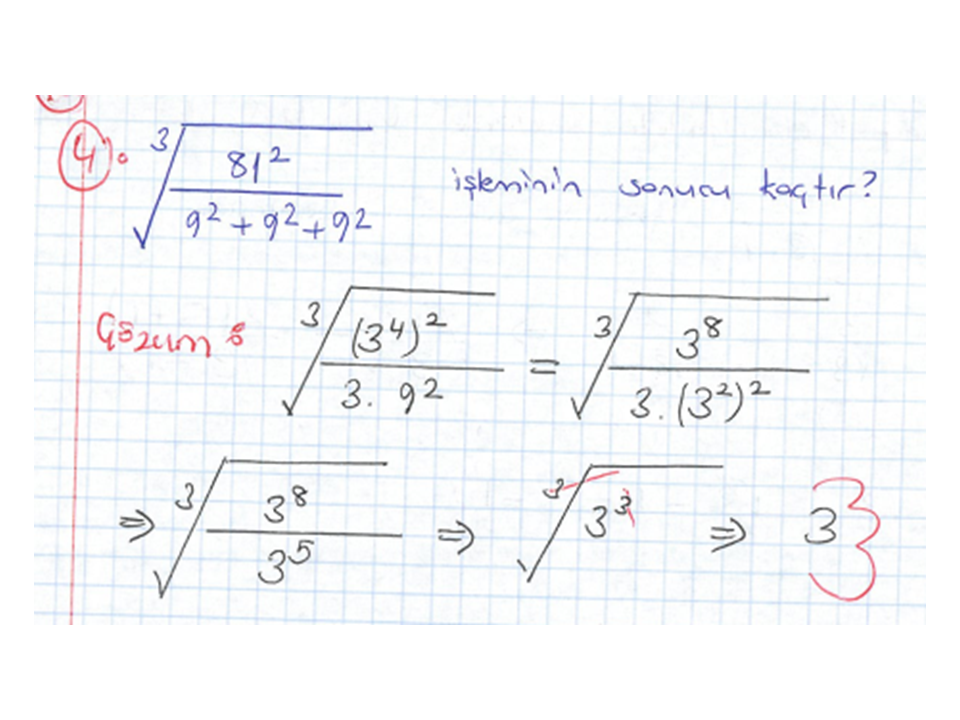 4. ∛(81² / (9² + 9² + 9²)) işleminin sonucu kaçtır?
Çözüm : ∛((3⁴)² / (3 . 9²)) = ∛(3⁸ / (3 . (3²)²))
⇒ ∛(3⁸ / 3⁵) ⇒ ∛(3³) ⇒ 3